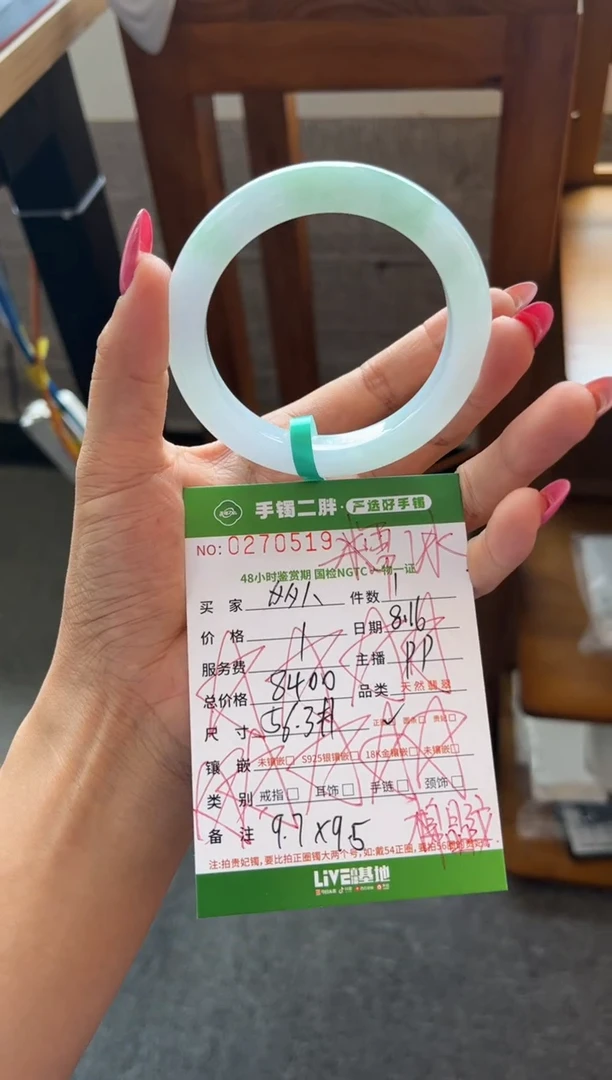 手镯二胖·严选好手镯
NO:0270519
48小时鉴赏期 国检NGTC 一物一证
买 家 件数 1
价 格 1 日期 8.16
服务费 主播 PP
总价格 8400 品类 天然翡翠
尺 寸 56.3 正圈☑ 圆条☐ 贵妃☐
镶 嵌 未镶嵌☐ S925银镶嵌☐ 18K金镶嵌☐ 未镶嵌☐
类 别 戒指☐ 耳饰☐ 手链☐ 颈饰☐
备 注 9.7×9.5
注:拍贵妃镯,要比拍正圈镯大两个号,如:戴54正圈,需拍56圈的贵妃镯
LIVE 基地